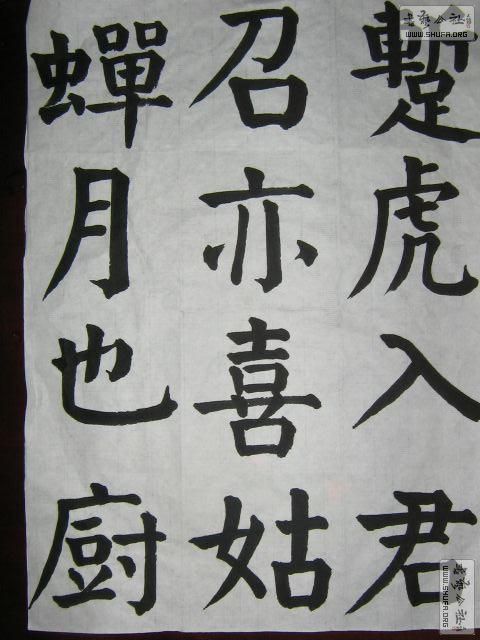 蹔虎入君
召亦喜姑
蟬月也廚
书艺公社
WWW.SHUFA.ORG
书艺公社
WWW.SHUFA.ORG